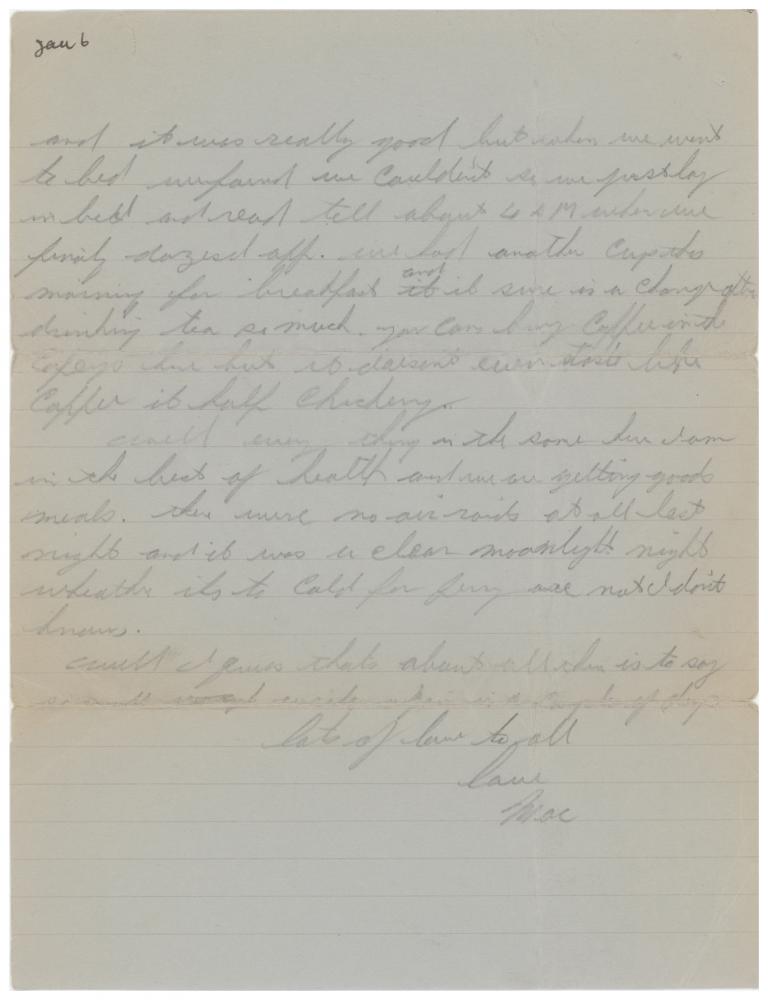 Jan 6
and it was really good but when we went
to bed we found we couldn't so we just lay
in bed and read tell about 4 AM when we
finaly dozesd off. we had another Cup this
morning for breakfast and it sure is a change after
drinking tea so much. you can buy Coffee in the
Cafeys here but it doesen't even taste like
Coffee it half Chickery.
well every thing is the same here I am
in the best of health and we are getting good
meals. there were no air raids at all last
night and it was a clear moonlight night
wheather its to Cold for Jerry are not I don't
know.
well I guess thats about all there is to say
so will write again in a Couple of days
lots of love to all
love
Mac